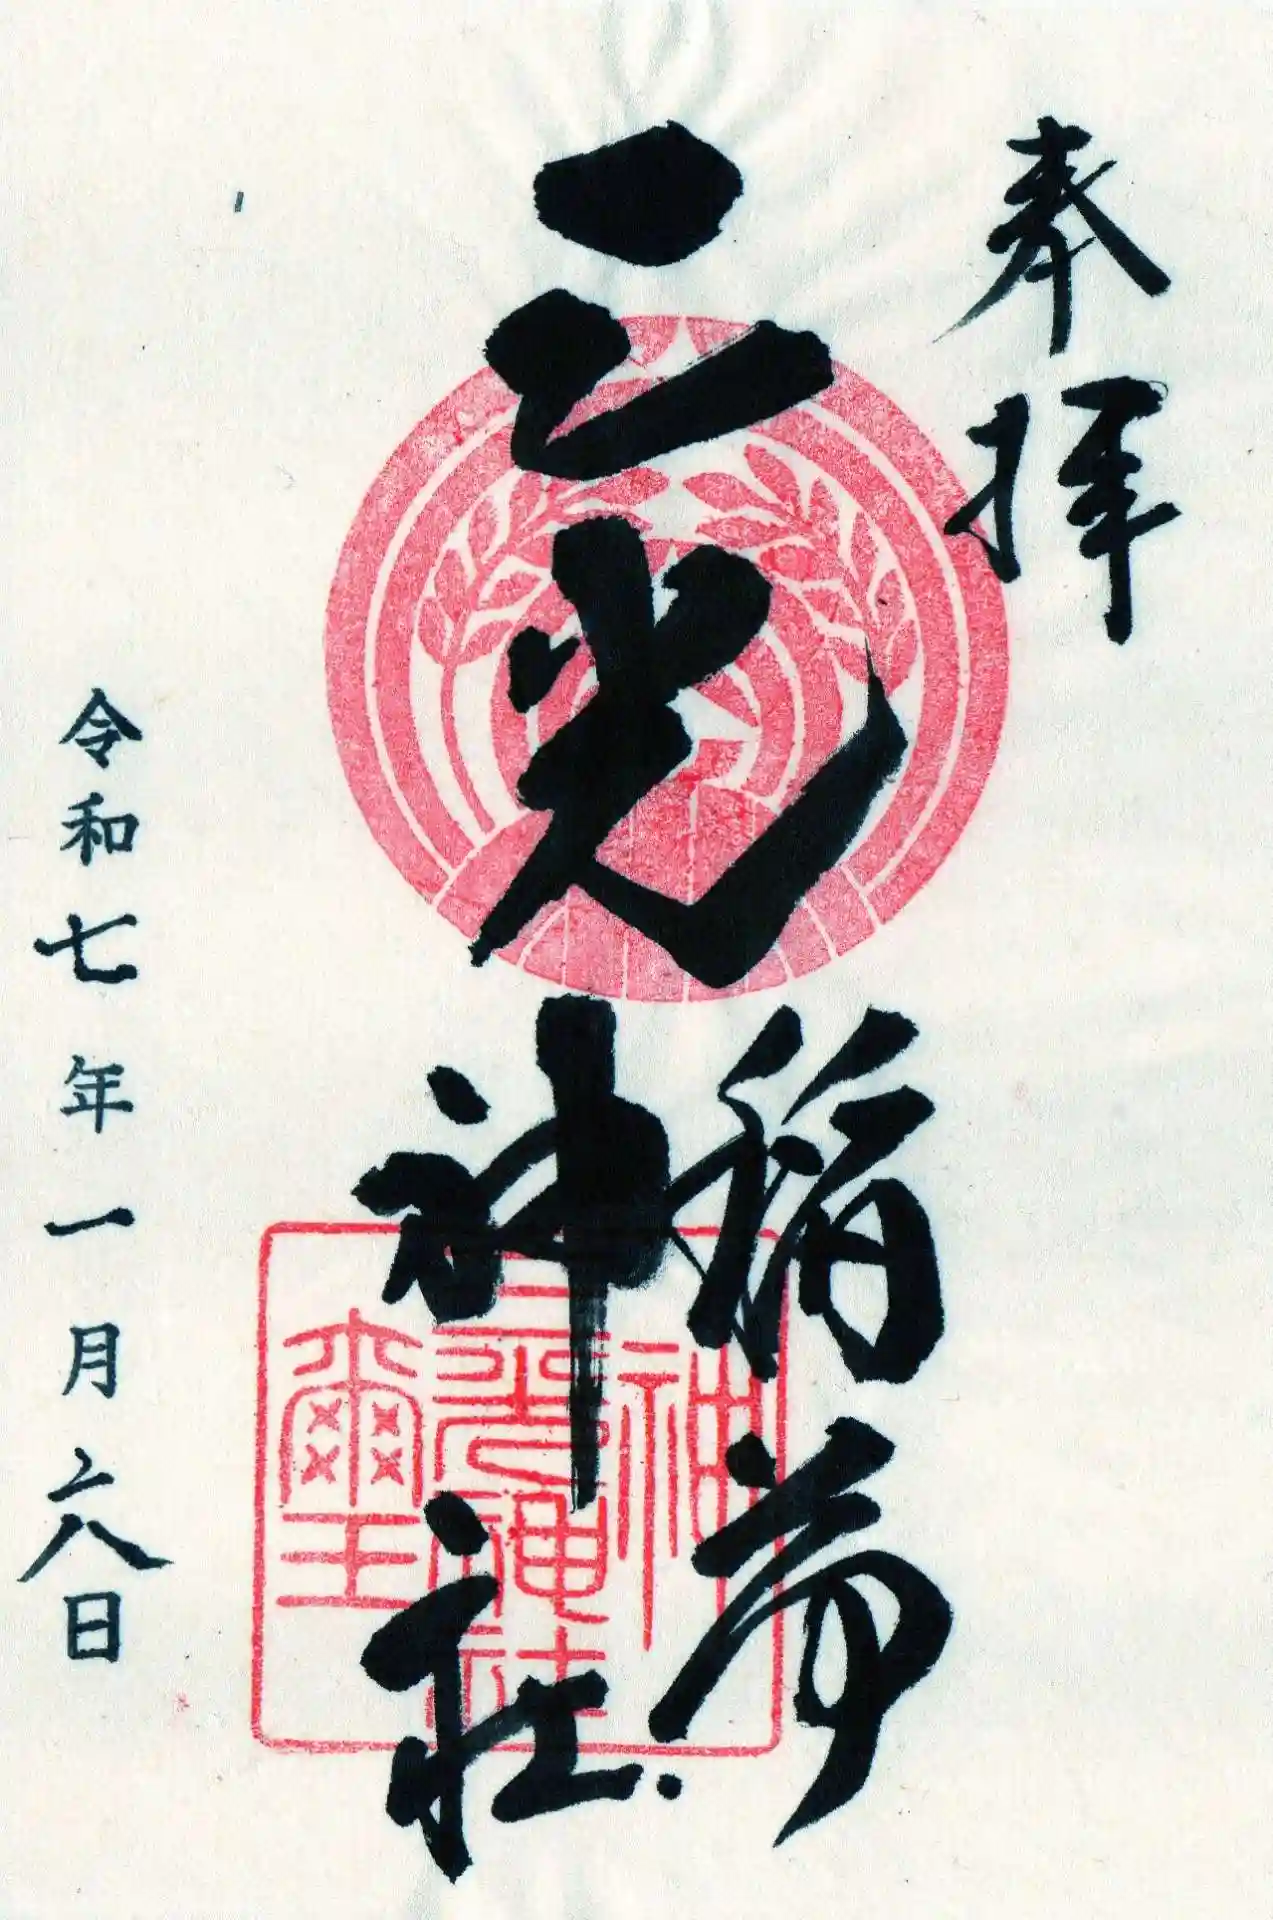 奉拝
三光
稲荷
神社
令和七年一月二八日
神
三光神社
璽